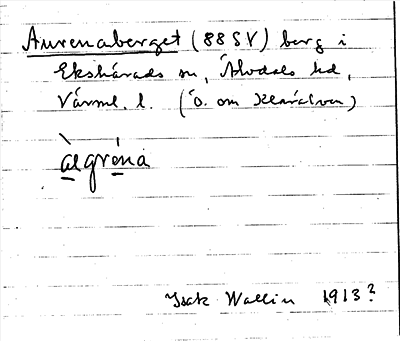 Aurenaberget (88SV) berg i
Ekshärads sn, Älvdals hd,
Värml. l. (ö. om Klarälven)
ægrena
Isak Wallin 1913?